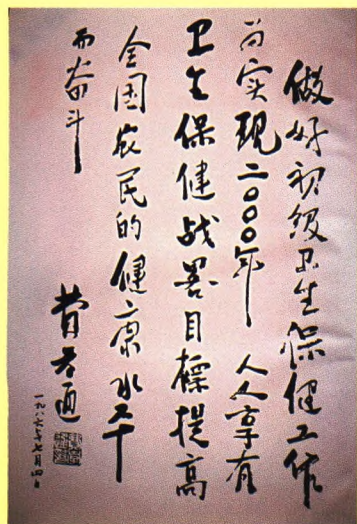 做好初级卫生保健工作
为实现二〇〇〇年人人享有
卫生保健战略目标提高
全国农民的健康水平
而奋斗
费孝通
一九八六年七月四日